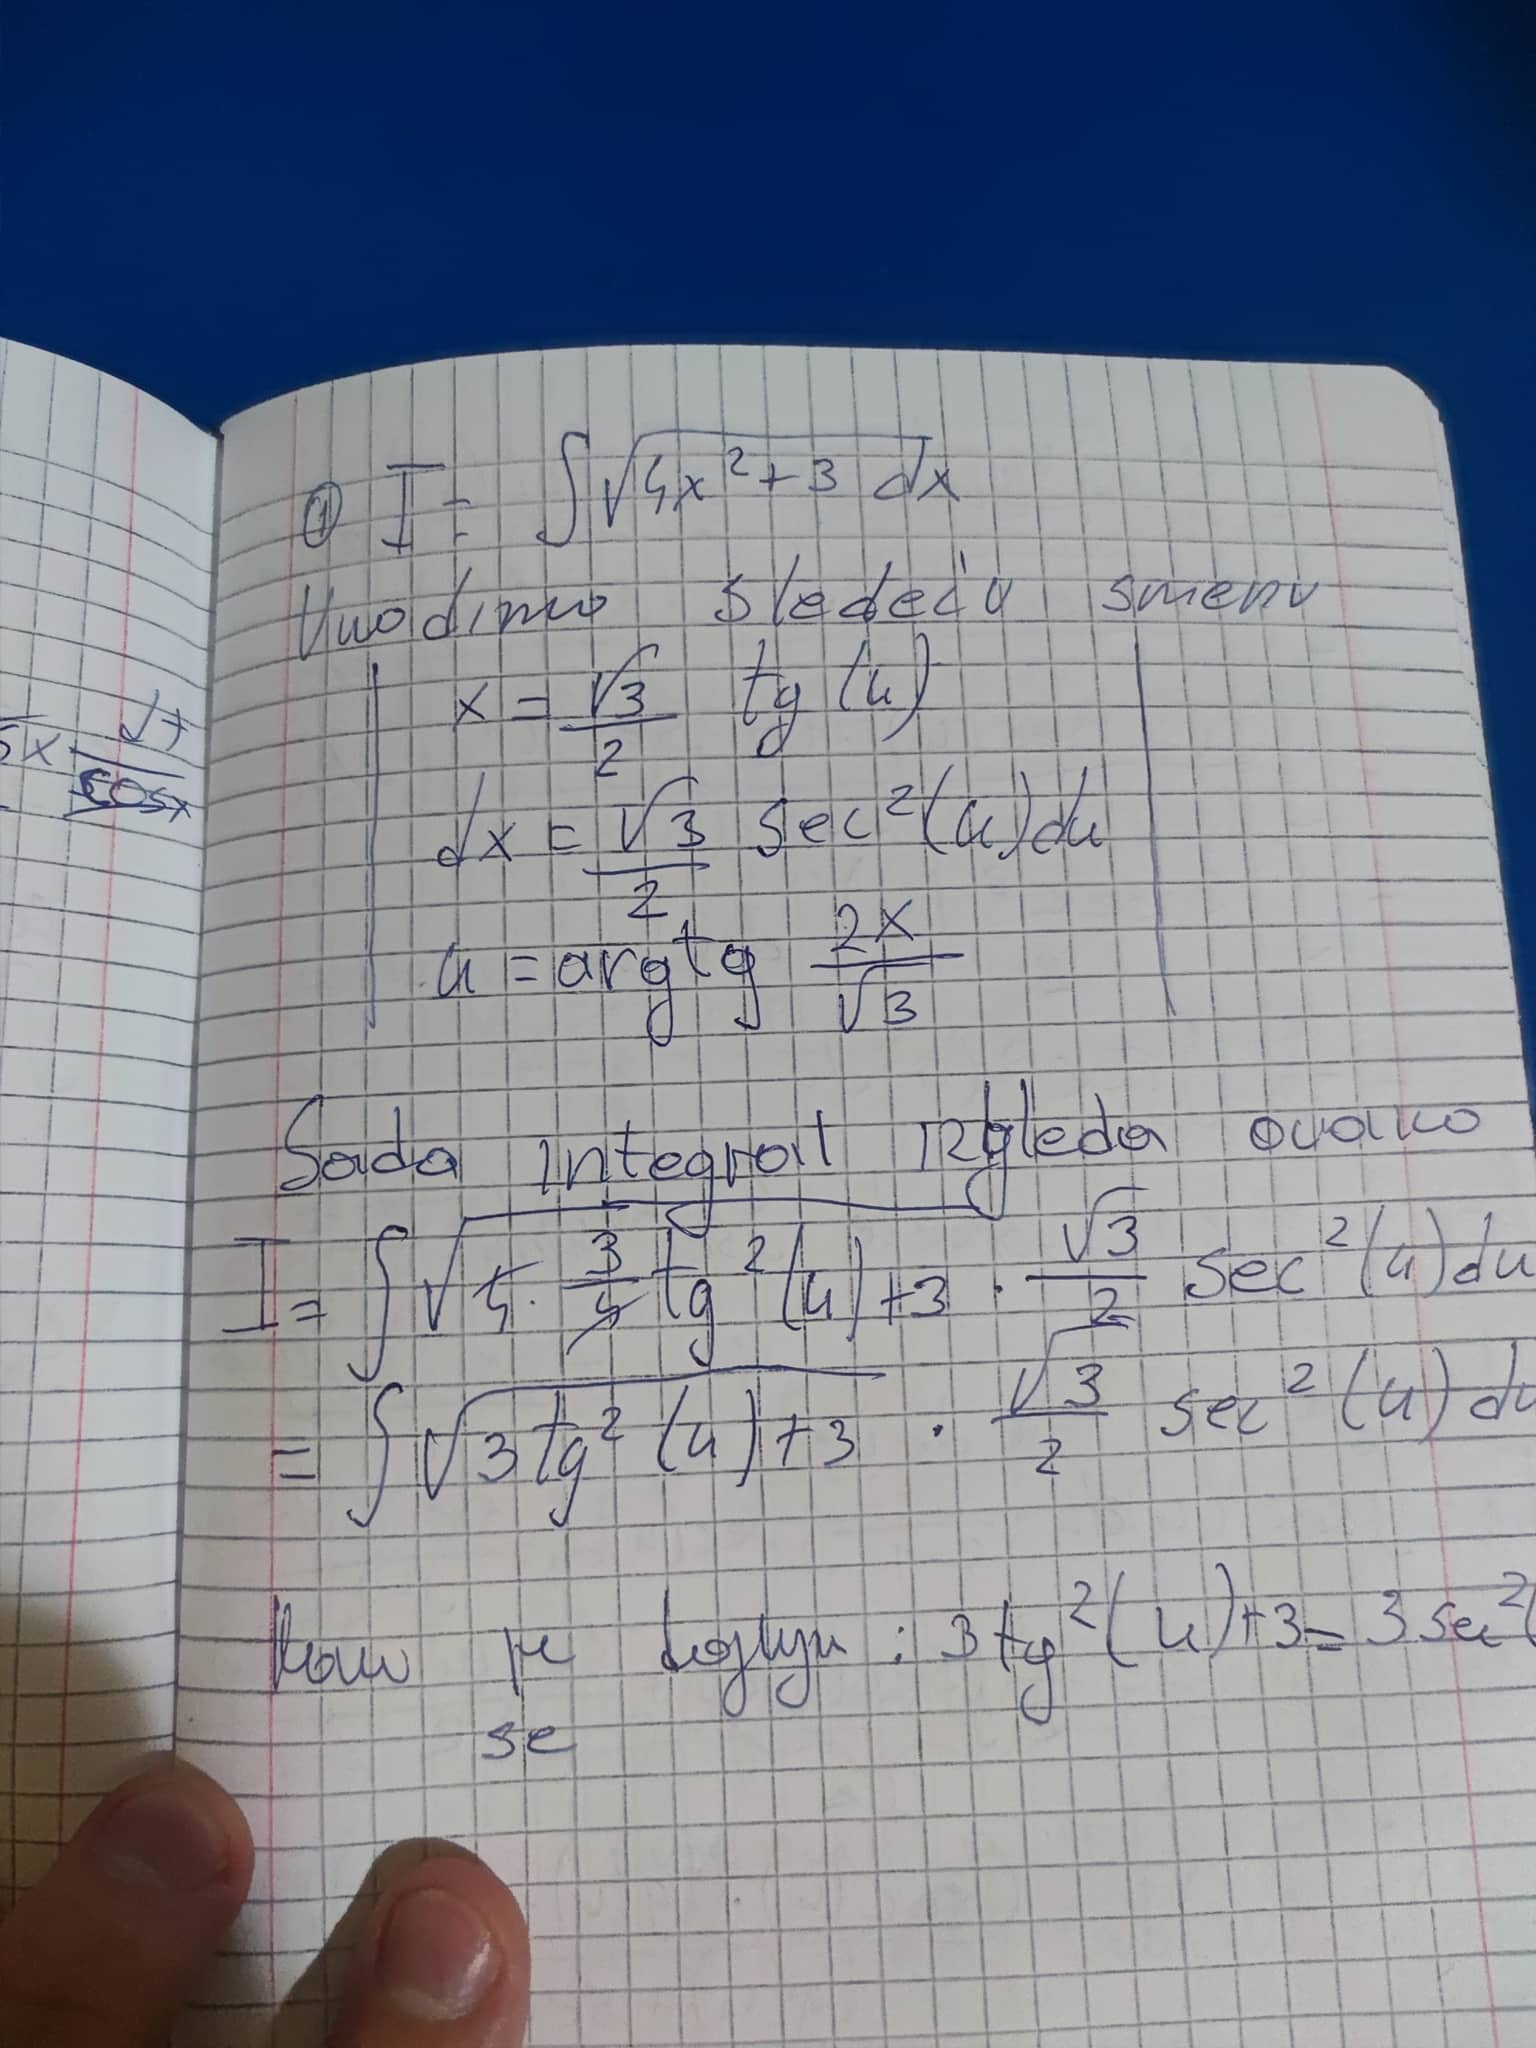 5x √x
cosx
① I = ∫√4x²+3 dx
Uvodimo sledeću smenu
x = √3/2 tg(u)
dx = √3/2 sec²(u)du
u = argtg 2x/√3
Sada integral izgleda ovako
I = ∫√4·3/4 tg²(u)+3 · √3/2 sec²(u)du
= ∫√3tg²(u)+3 · √3/2 sec²(u)du
: 3tg²(u)+3=3sec²(
se